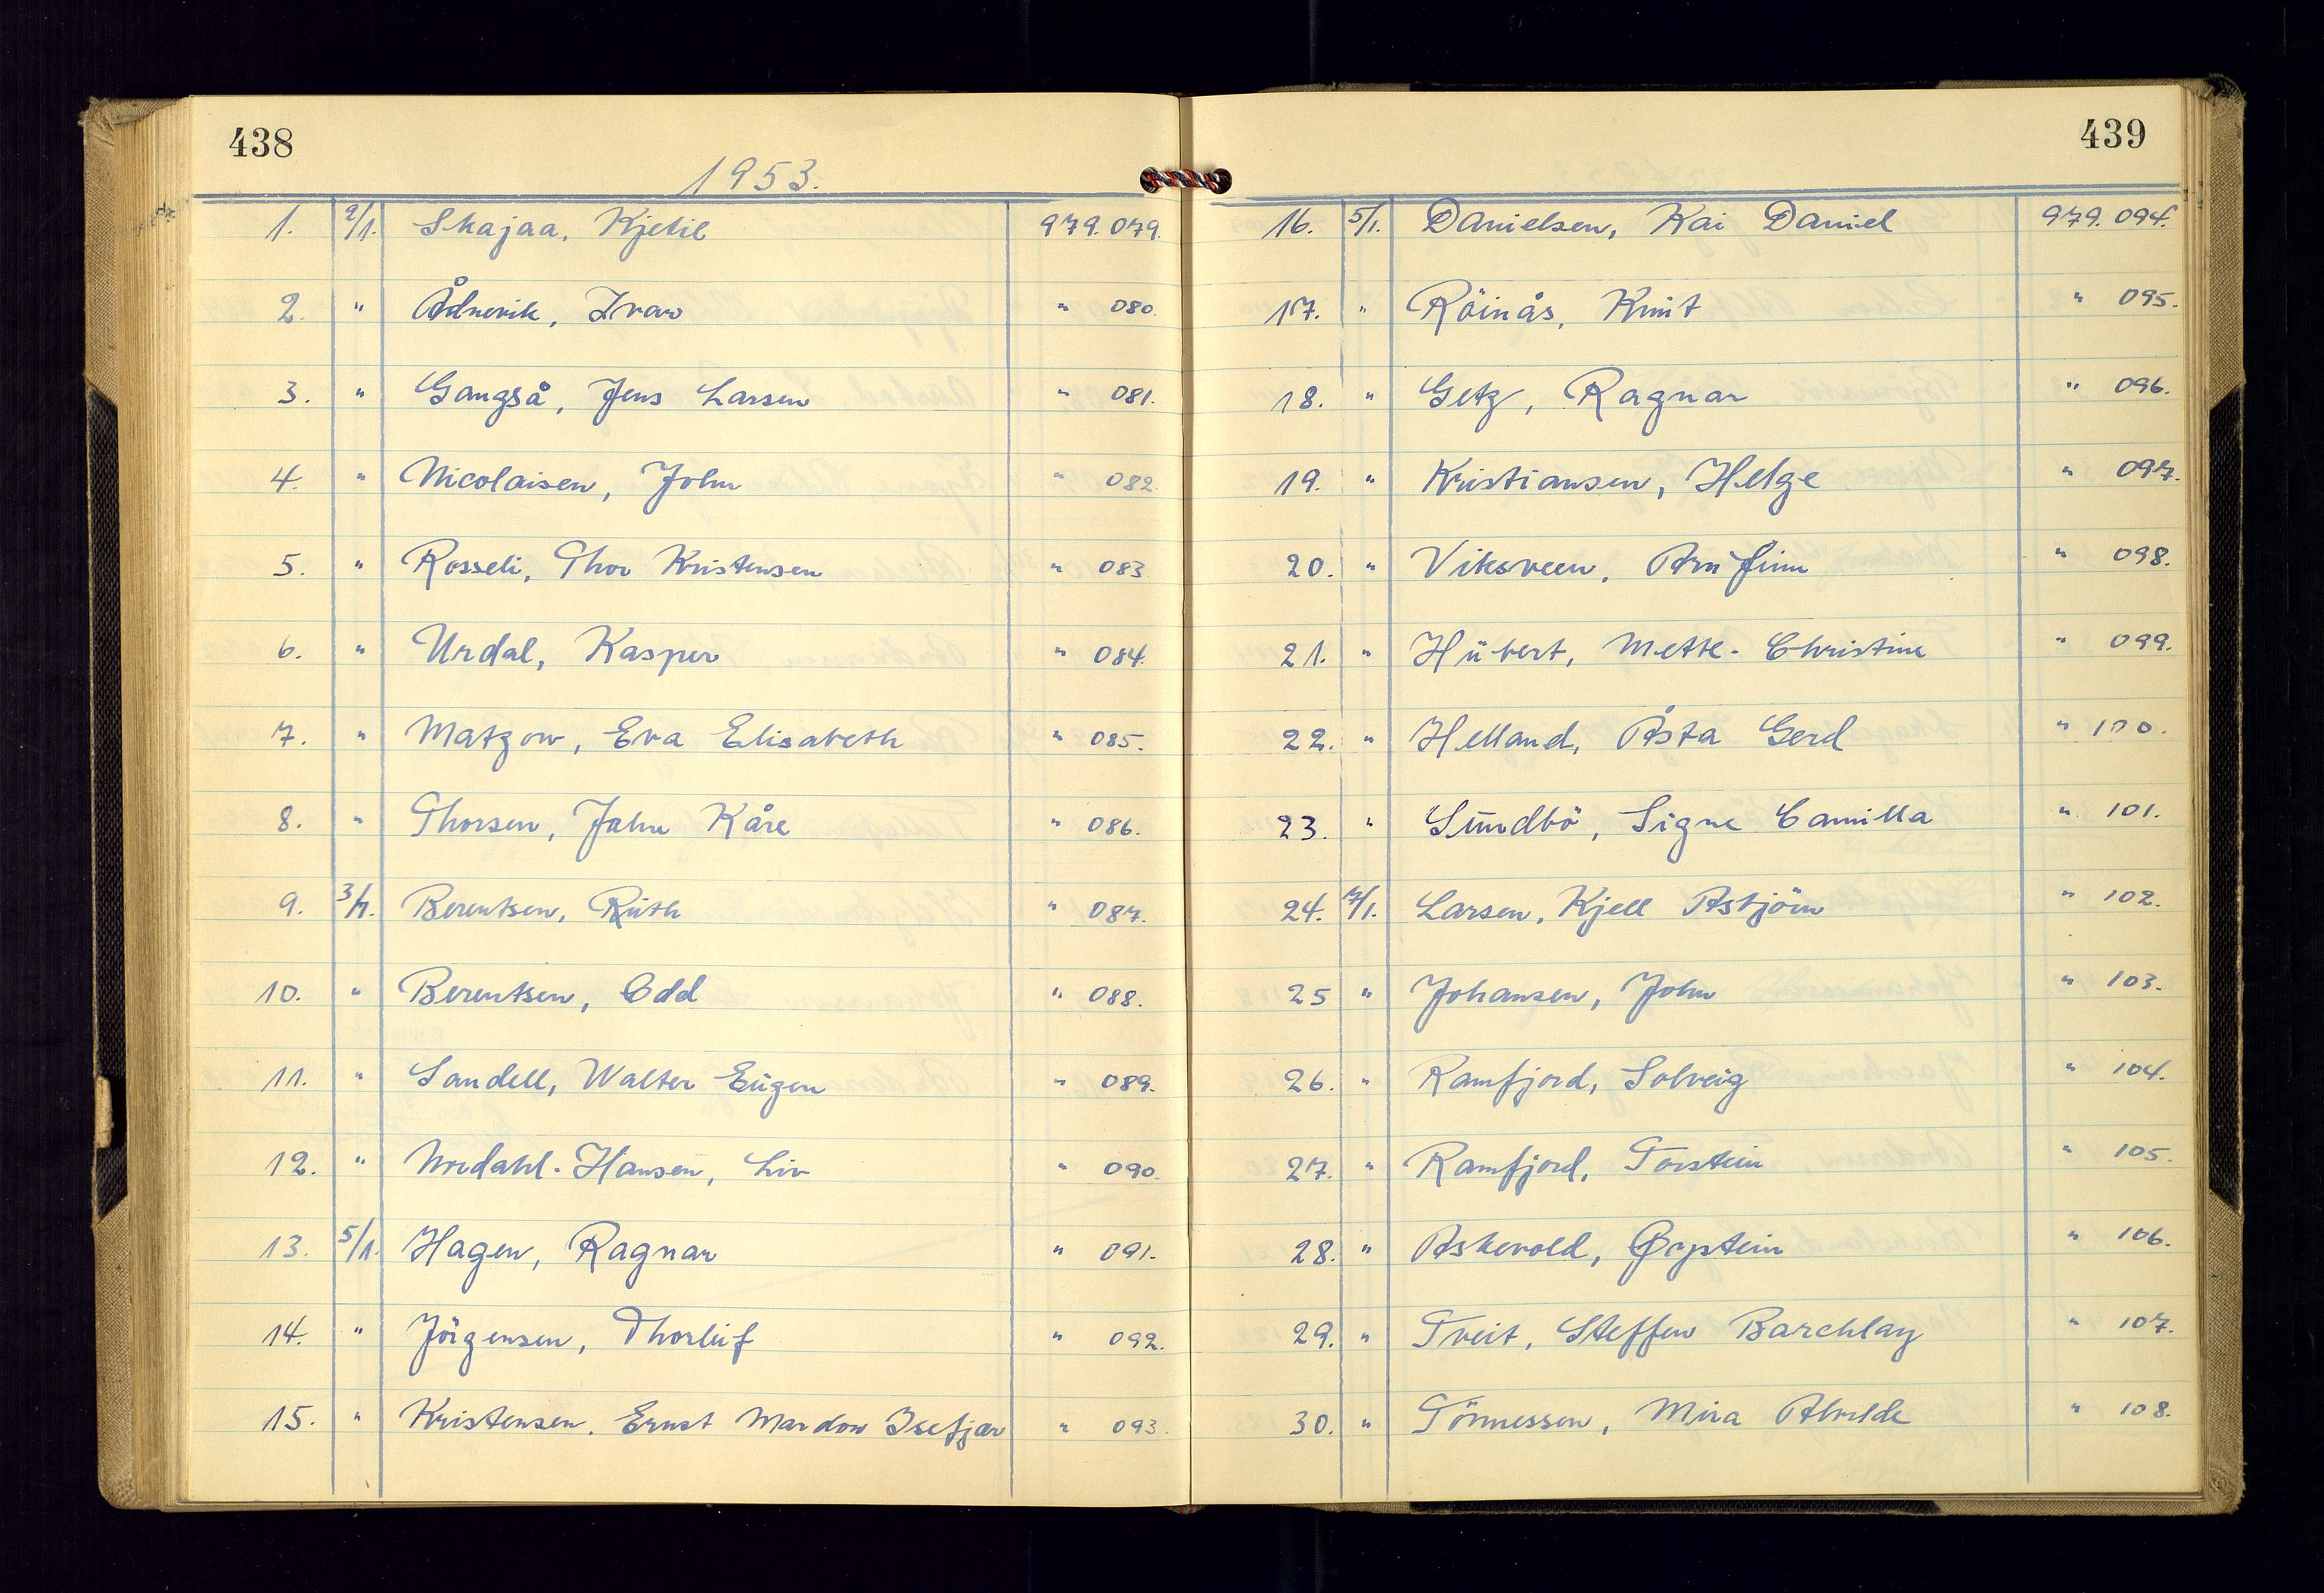 438
1953.
1. 2/1. Skajaa, Kjetil 979.079.
2. " Ådnevik, Ivar " 080.
3. " Gangså, Jens Larsen " 081.
4. " Nicolaisen, John " 082.
5. " Rosseli, Thor Kristensen " 083.
6. " Urdal, Kasper " 084.
7. " Matzow, Eva Elisabeth " 085.
8. " Thorsen, John Kåre " 086.
9. 3/1. Berentsen, Ruth " 087.
10. " Berentsen, Odd " 088.
11. " Sandell, Walter Eugen " 089.
12. " Nordahl-Hansen, Liv " 090.
13. 5/1. Hagen, Ragnar " 091.
14. " Jörgensen, Thorleif " 092.
15. " Kristensen. Ernst Mardow Isefjær " 093.
439
16. 5/1. Danielsen, Kai Daniel 979.094.
17. " Röinås, Knut " 095.
18. " Getz, Ragnar " 096.
19. " Kristiansen, Helge " 097.
20. " Viksveen, Arnfinn " 098.
21. " Hübert, Mette-Christine " 099.
22. " Helland, Åsta Gerd " 100.
23. " Sundbö, Signe Camilla " 101.
24. 7/1. Larsen, Kjell Asbjörn " 102.
25 " Johansen, John " 103.
26. " Ramfjord, Solveig " 104.
27. " Ramfjord, Torstein " 105.
28. " Askevold, Øystein " 106.
29. " Tveit, Steffen Barchlay " 107.
30. " Tönnessen, Mira Alvilde " 108.